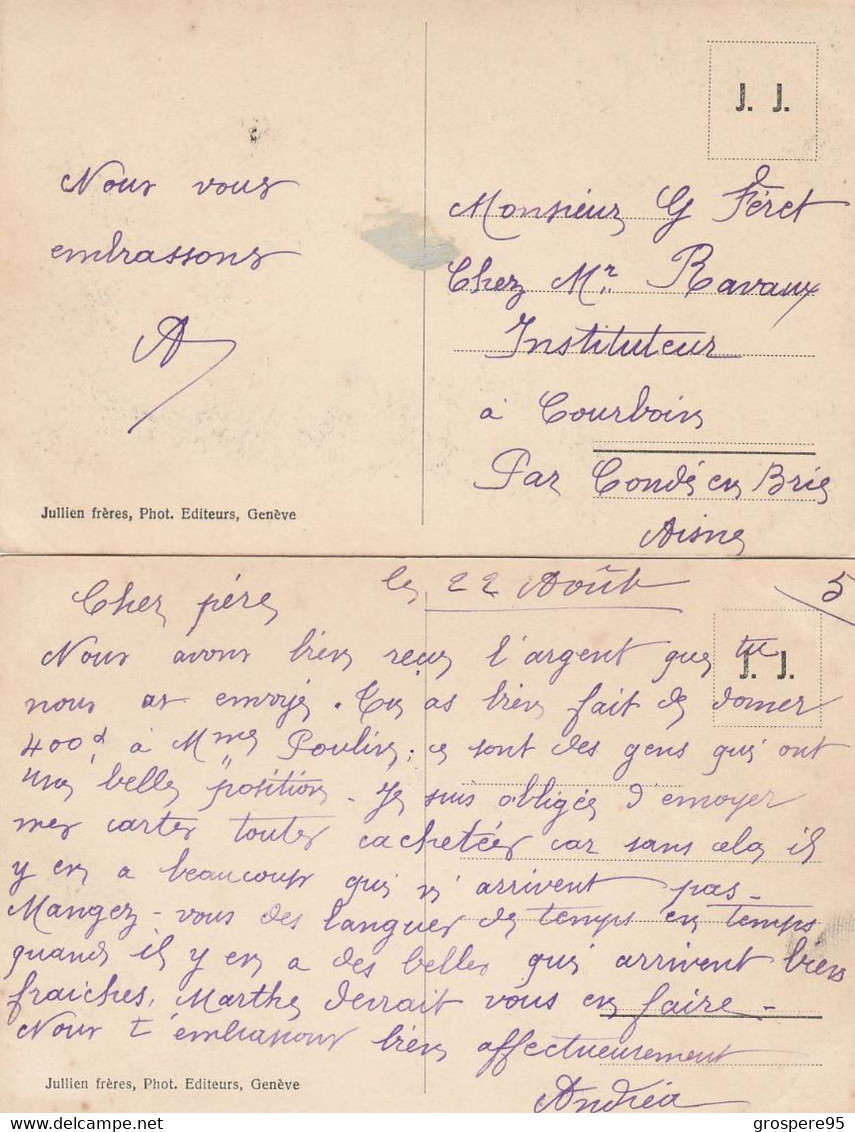 J. J.
Nous vous
embrassons
A
Monsieur G Féret
Chez Mr. Ravaux
Instituteur
à Courboin
Par Condé en Brie
Aisne
Jullien frères, Phot. Editeurs, Genève
le 22 Août 5
J. J.
Cher père
Nous avons bien reçu l'argent que tu
nous as envoyé. Tu as bien fait de donner
400 à Mme Poulin; ce sont des gens qui ont
une belle "position - Je suis obligée d'envoyer
mes cartes toutes cachetées car sans cela il
y en a beaucoup qui n'arrivent pas -
Mangez-vous des langues de temps en temps
quand il y en a des belles qui arrivent bien
fraiches, Marthe devrait vous en faire -
Nous t'embrassons bien affectueusement
Andréa
Jullien frères, Phot. Editeurs, Genève
grospere95